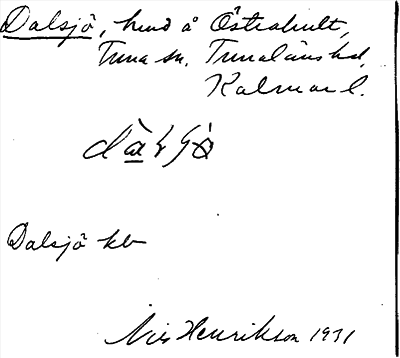 Dalsjö, hmd å Östrahult,
Tuna sn. Tunaläns hd.
Kalmar l.
Dalsjö kb
Nils Henrikson 1931